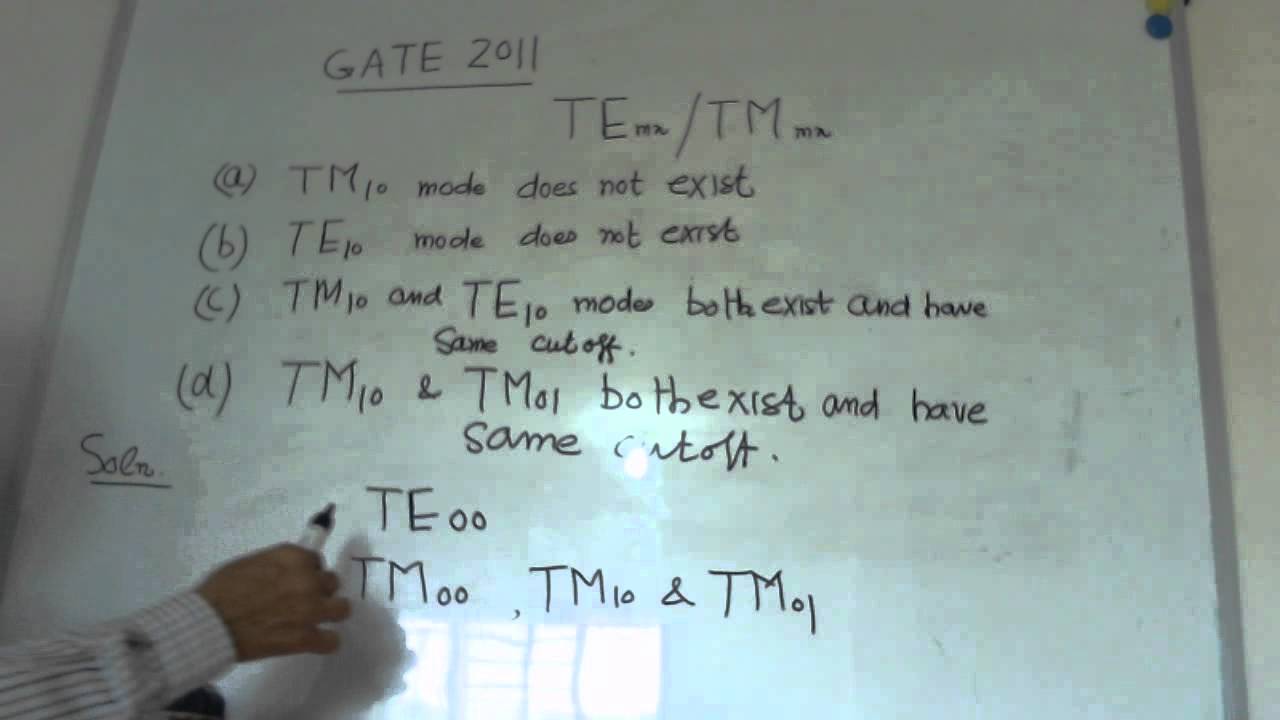 GATE 2011
TEmn/TMmn
(a) TM10 mode does not exist
(b) TE10 mode does not exist
(c) TM10 and TE10 modes both exist and have
same cutoff.
(d) TM10 & TM01 both exist and have
same cutoff.
Soln.
TE00
TM00, TM10 & TM01